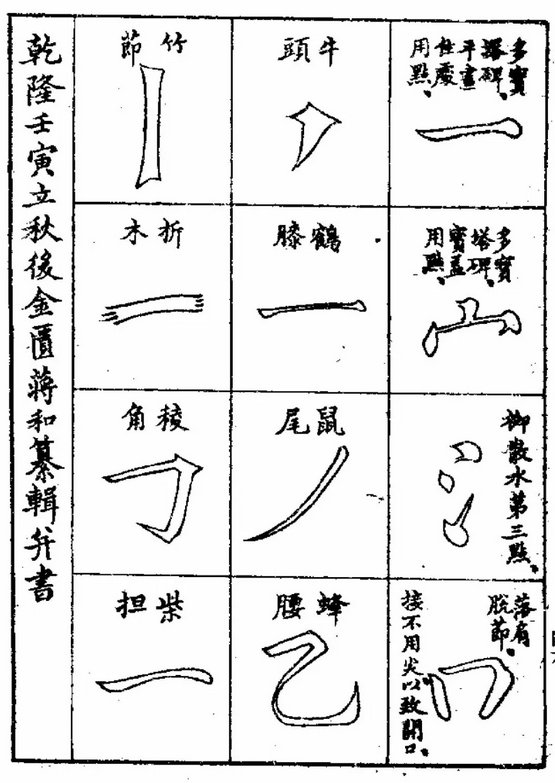 多寶
塔碑、
平畫
住處
用點、
多寶
塔碑、
寶蓋
用點、
柳散水第三點、
落肩
脫節、
接不用尖以致開口、
牛頭
鶴膝
鼠尾
蜂腰
竹節
折木
稜角
柴担
乾隆壬寅立秋後金匱蔣和纂輯并書